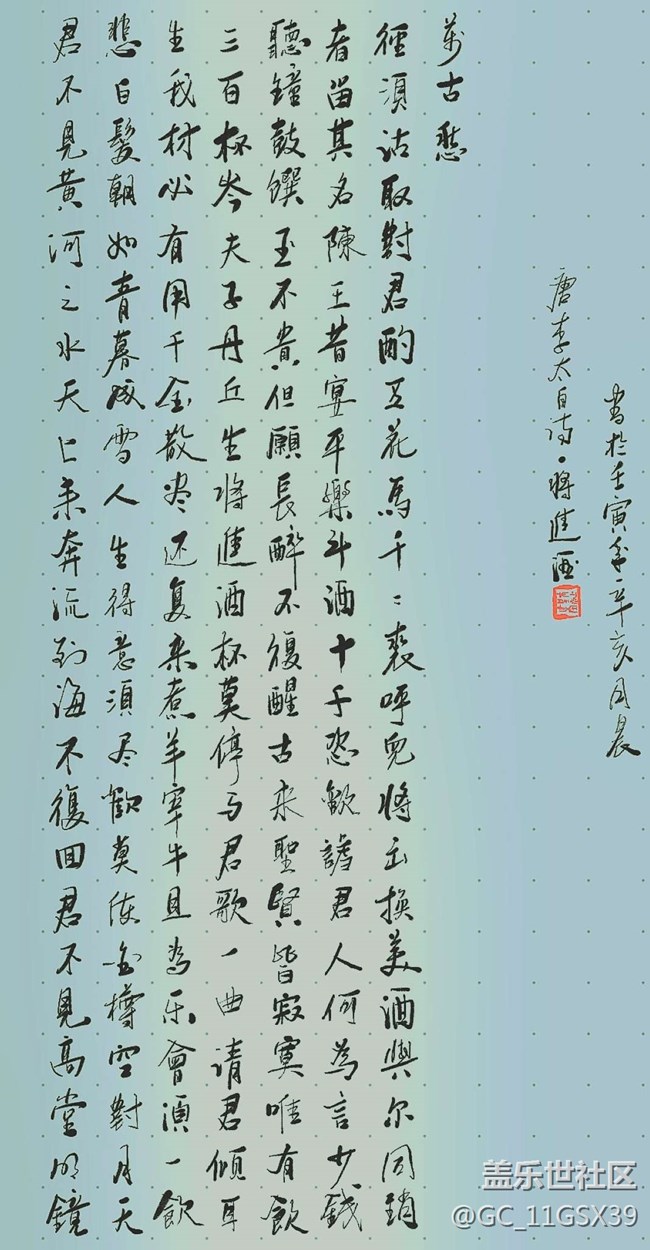 君不見黃河之水天上来奔流到海不復回君不見高堂明鏡
悲白髮朝如青暮成雪人生得意須尽歡莫使金樽空對月天
生我材必有用千金散尽还复来煮羊宰牛且為乐會須一飲
三百杯岑夫子丹丘生將進酒杯莫停与君歌一曲请君倾耳
聽鐘鼓饌玉不貴但願長醉不復醒古来聖賢皆寂寞唯有飲
者留其名陳王昔宴平樂斗酒十千恣歡謔君人何為言少錢
徑須沽取對君酌五花馬千々裘呼兒將出换美酒與尔同銷
萬古愁
唐李太白诗·將進酒
書於壬寅年辛亥月晨
盖乐世社区
@GC_11GSX39